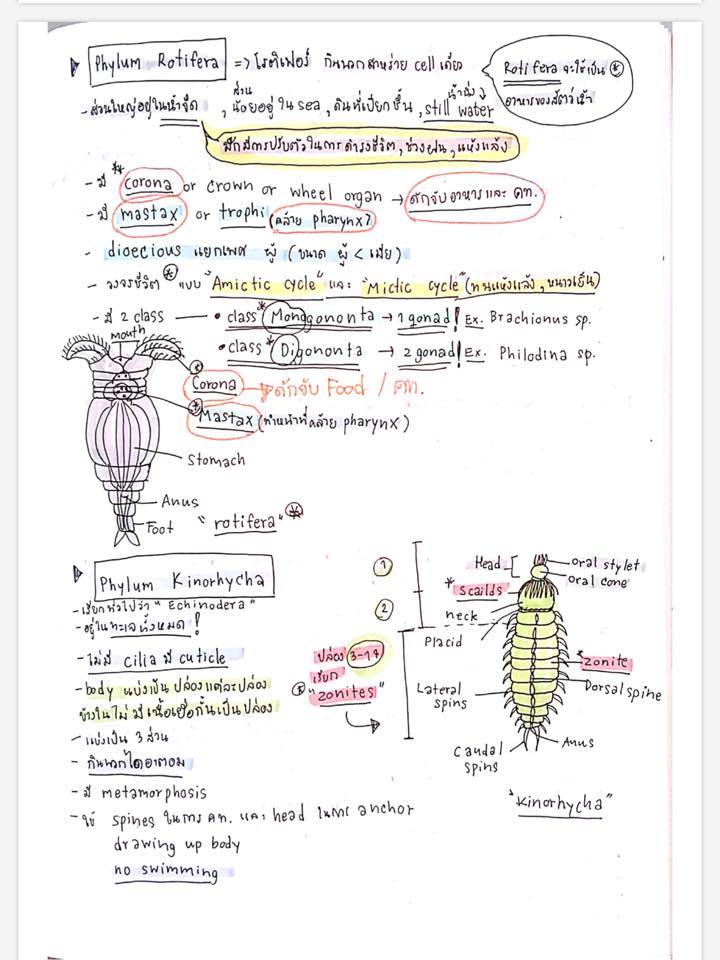 Phylum Rotifera => โรติเฟอร์ กินพวกสาหร่าย cell เดียว
Rotifera จะใช้เป็น
อาหารของสัตว์น้ำ
- ส่วนใหญ่อยู่ในน้ำจืด , ส่วนน้อยอยู่ใน sea , ดินที่เปียกชื้น , still water
น้ำนิ่ง
มักมีการปรับตัวในการดำรงชีวิต, ช่วงฝน, แห้งแล้ง
- มี corona or crown or wheel organ → ดักจับอาหารและ คท.
- มี mastax or trophi (คล้าย pharynx)
- dioecious แยกเพศ ผู้ (ขนาด ผู้ < เมีย)
- วงจรชีวิต แบบ "Amictic cycle" และ "Mictic cycle" (ทนแห้งแล้ง, หนาวเย็น)
- มี 2 class • class Monogononta → 1 gonad! Ex. Brachionus sp.
• class Digononta → 2 gonad! Ex. Philodina sp.
mouth
Corona → ดักจับ Food / คท.
Mastax (ทำหน้าที่คล้าย pharynx)
Stomach
Anus
Foot
"rotifera"
Phylum Kinorhycha
- เรียกทั่วไปว่า "Echinodera"
- อยู่ในทะเลทั้งหมด!
- ไม่มี cilia มี cuticle
- body แบ่งเป็น ปล้องแต่ละปล้อง
ข้างในไม่มีเนื้อเยื่อกั้นเป็นปล้อง
- แบ่งเป็น 3 ส่วน
- กินพวกไดอะตอม
- มี metamorphosis
- ใช้ spines ในการ คท. และ head ในการ anchor
drawing up body
no swimming
1
2
ปล้อง 3-13
เรียก
"zonites"
Head
oral stylet
oral cone
scailds
neck
Placid
zonite
Lateral
spins
Dorsal spine
Caudal
spins
Anus
"Kinorhycha"